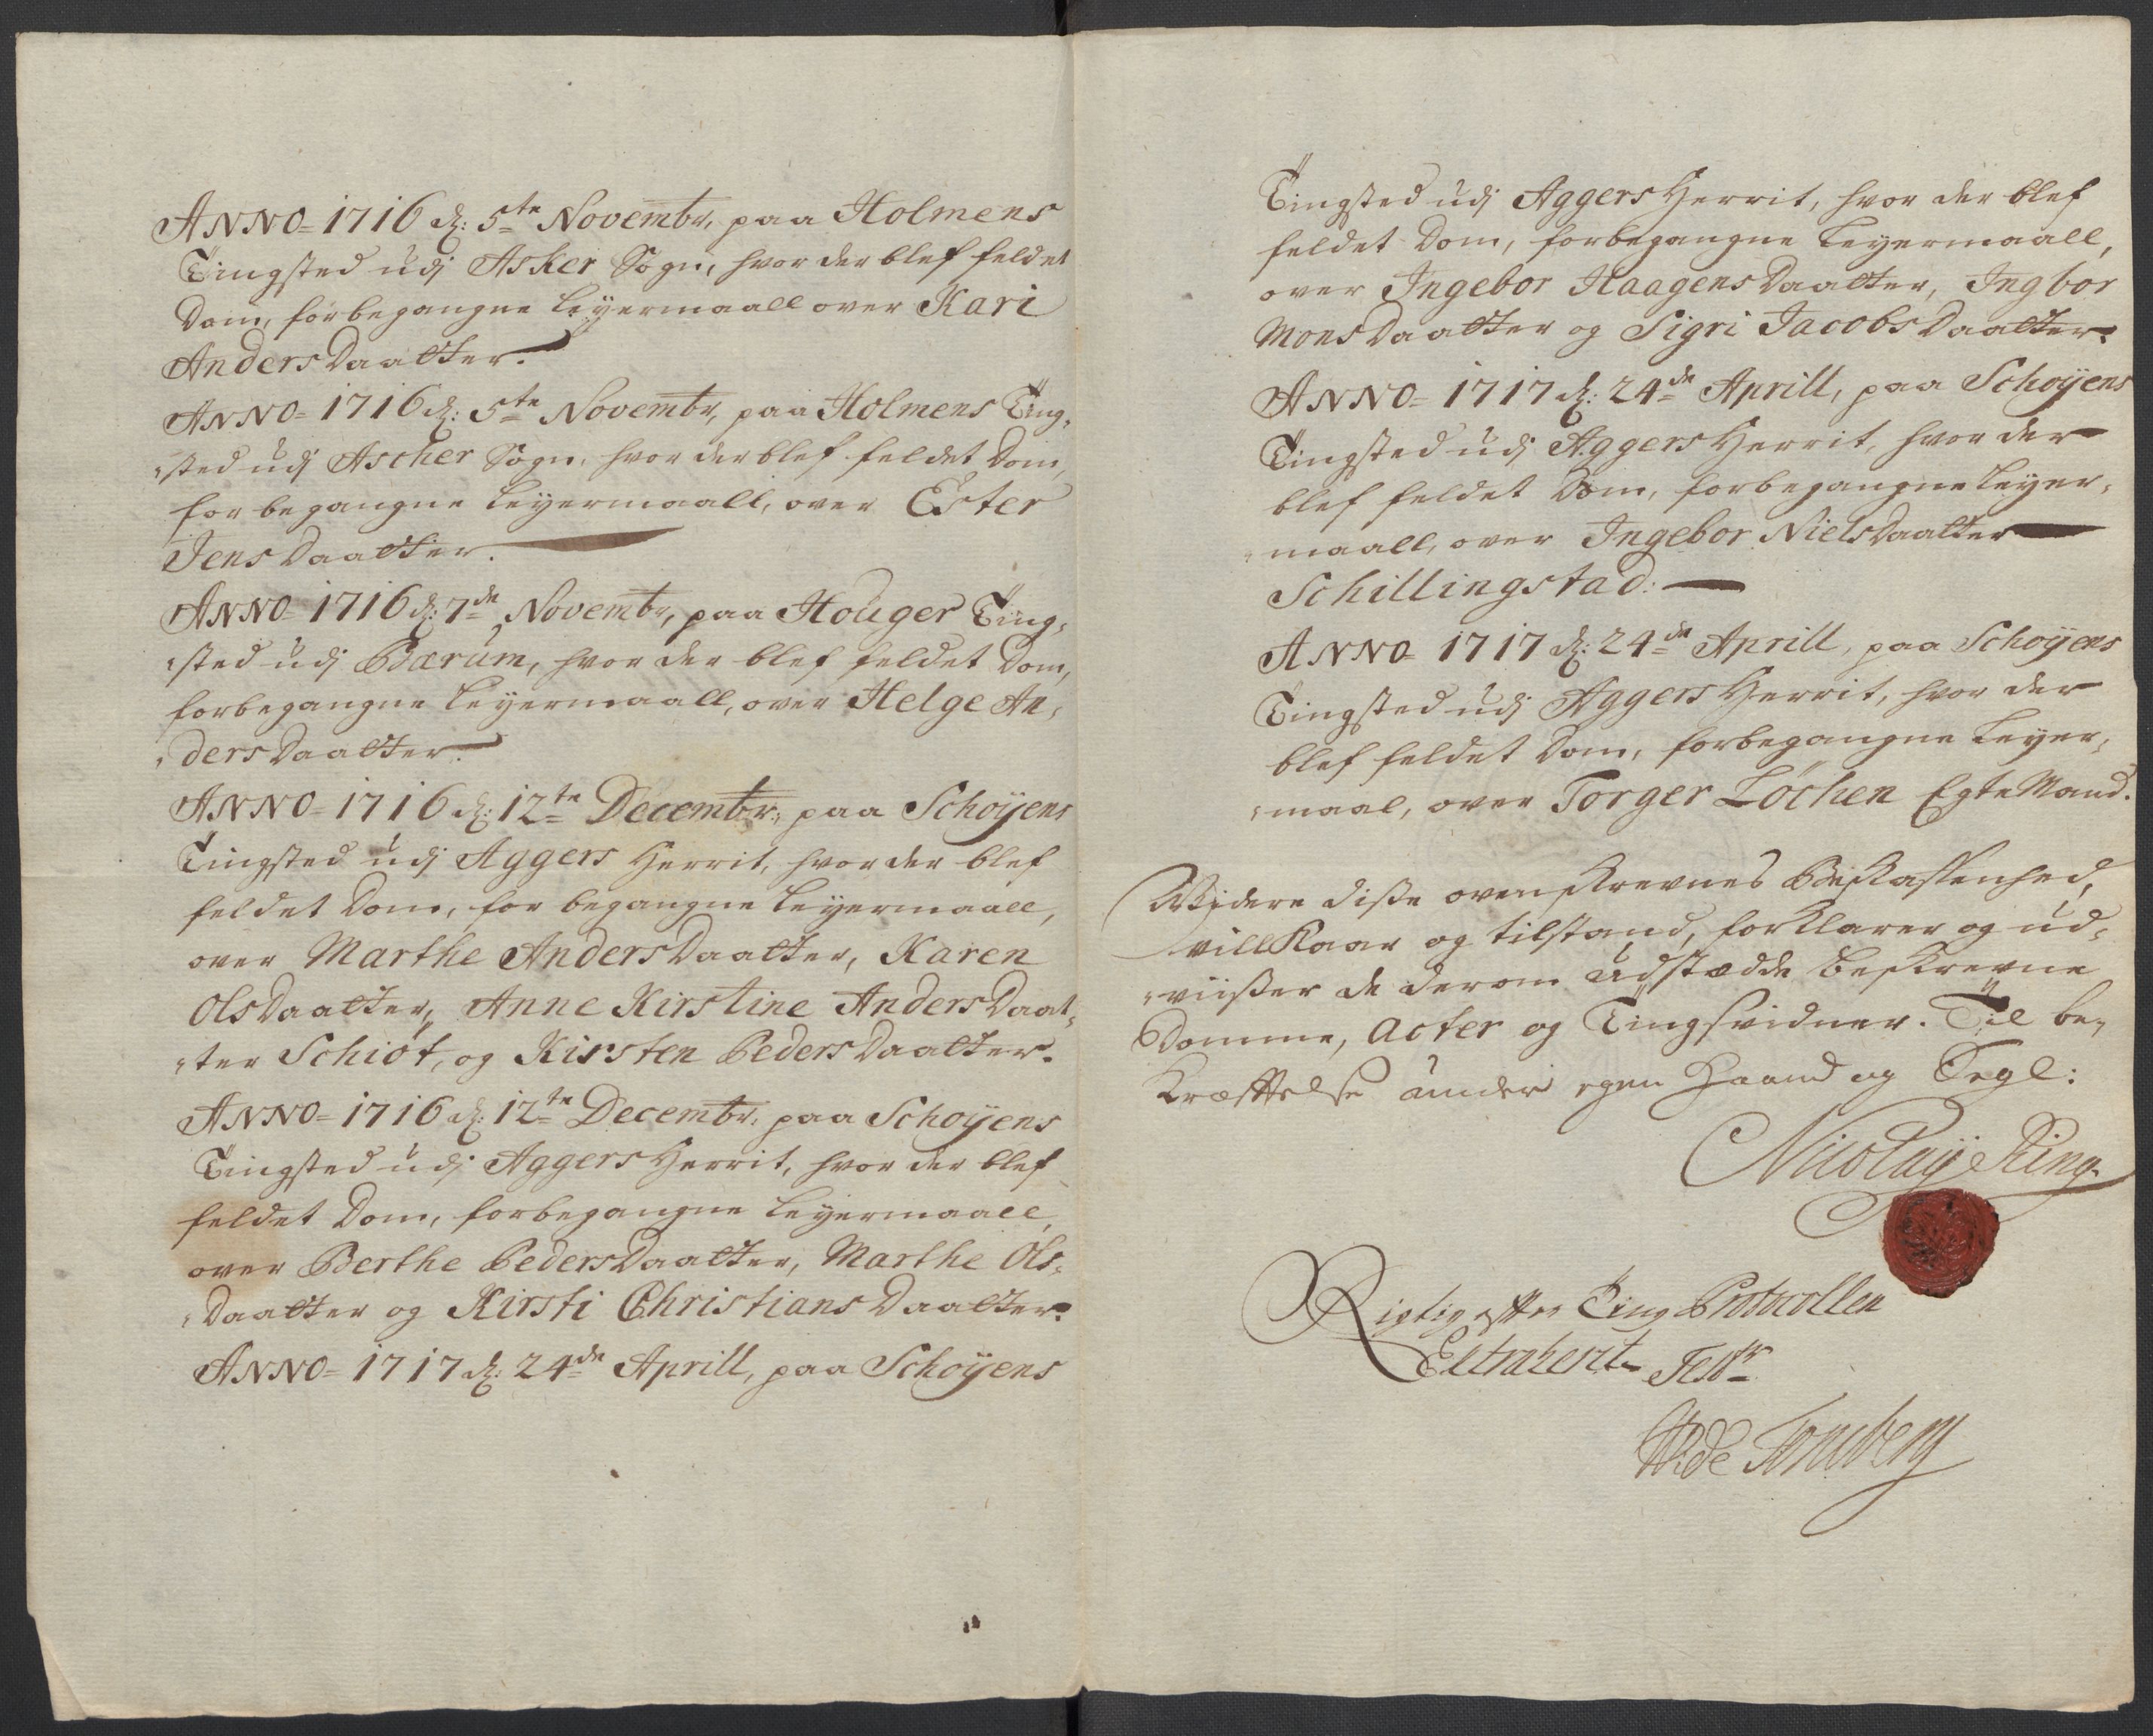 ANNO= 1716 d: 5te Novembr, paa Holmens
Tingsted udj Asker Sogn, hvor der blef feldet
Dom, for begangne Leyermaall over Kari
Anders Daatter.
ANNO= 1716 d: 5te Novembr, paa Holmens Ting-
-sted udj Ascher Sogn, hvor der blef feldet Dom,
for begangne Leyermaall, over Ester
Jens Daatter.
ANNO= 1716 d: 7de Novembr, paa Houger Ting-
-sted udj Bærum, hvor der blef feldet Dom,
for begangne Leyermaall, over Helge An-
-ders Daatter.
ANNO= 1716 d: 12te Decembr, paa Schøyens
Tingsted udj Aggers Herrit, hvor der blef
feldet Dom, for begangne Leyermaall,
over Marthe Anders Daatter, Karen
Ols Daatter, Anne Kirstine Anders Daat-
-ter Schiøt, og Kirsten Peders Daatter.
ANNO= 1716 d: 12te Decembr, paa Schoyens
Tingsted udj Aggers Herrit, hvor der blef
feldet Dom, for begangne Leyermaall,
over Berthe Peders Daatter, Marthe Ols-
-Daatter og Kirsti Christians Daatter.
ANNO= 1717 d: 24de Aprill, paa Schoyens
Tingsted udj Aggers Herrit, hvor der blef
feldet Dom, for begangne Leyermaall,
over Ingebor Haagens Daatter, Ingbor
Mons Daatter og Sigri Jacobs Daatter.
ANNO= 1717 d: 24de Aprill, paa Schoyens
Tingsted udj Aggers Herrit, hvor der
blef feldet Dom, for begangne Leyer-
-maall, over Ingebor Niels Daatter
Schillingstad:
ANNO= 1717 d: 24de Aprill, paa Schoyens
Tingsted udj Aggers Herrit, hvor der
blef feldet Dom, for begangne Leyer-
-maal, over Torger Löchen Egte Mand.
Widere disse ovenskrevnes Beskaffenhed,
villkaar og tilstand, forklarer og ud-
-viisser de derom udstædde beskrevne
Domme, Acter og Tingsvidner. Til be-
kræfftelse under egen Haand og Segl:
Nicolay Ring
Rigtig effter Ting Protocollen
Extraherit Test:
Wide Tonsberg